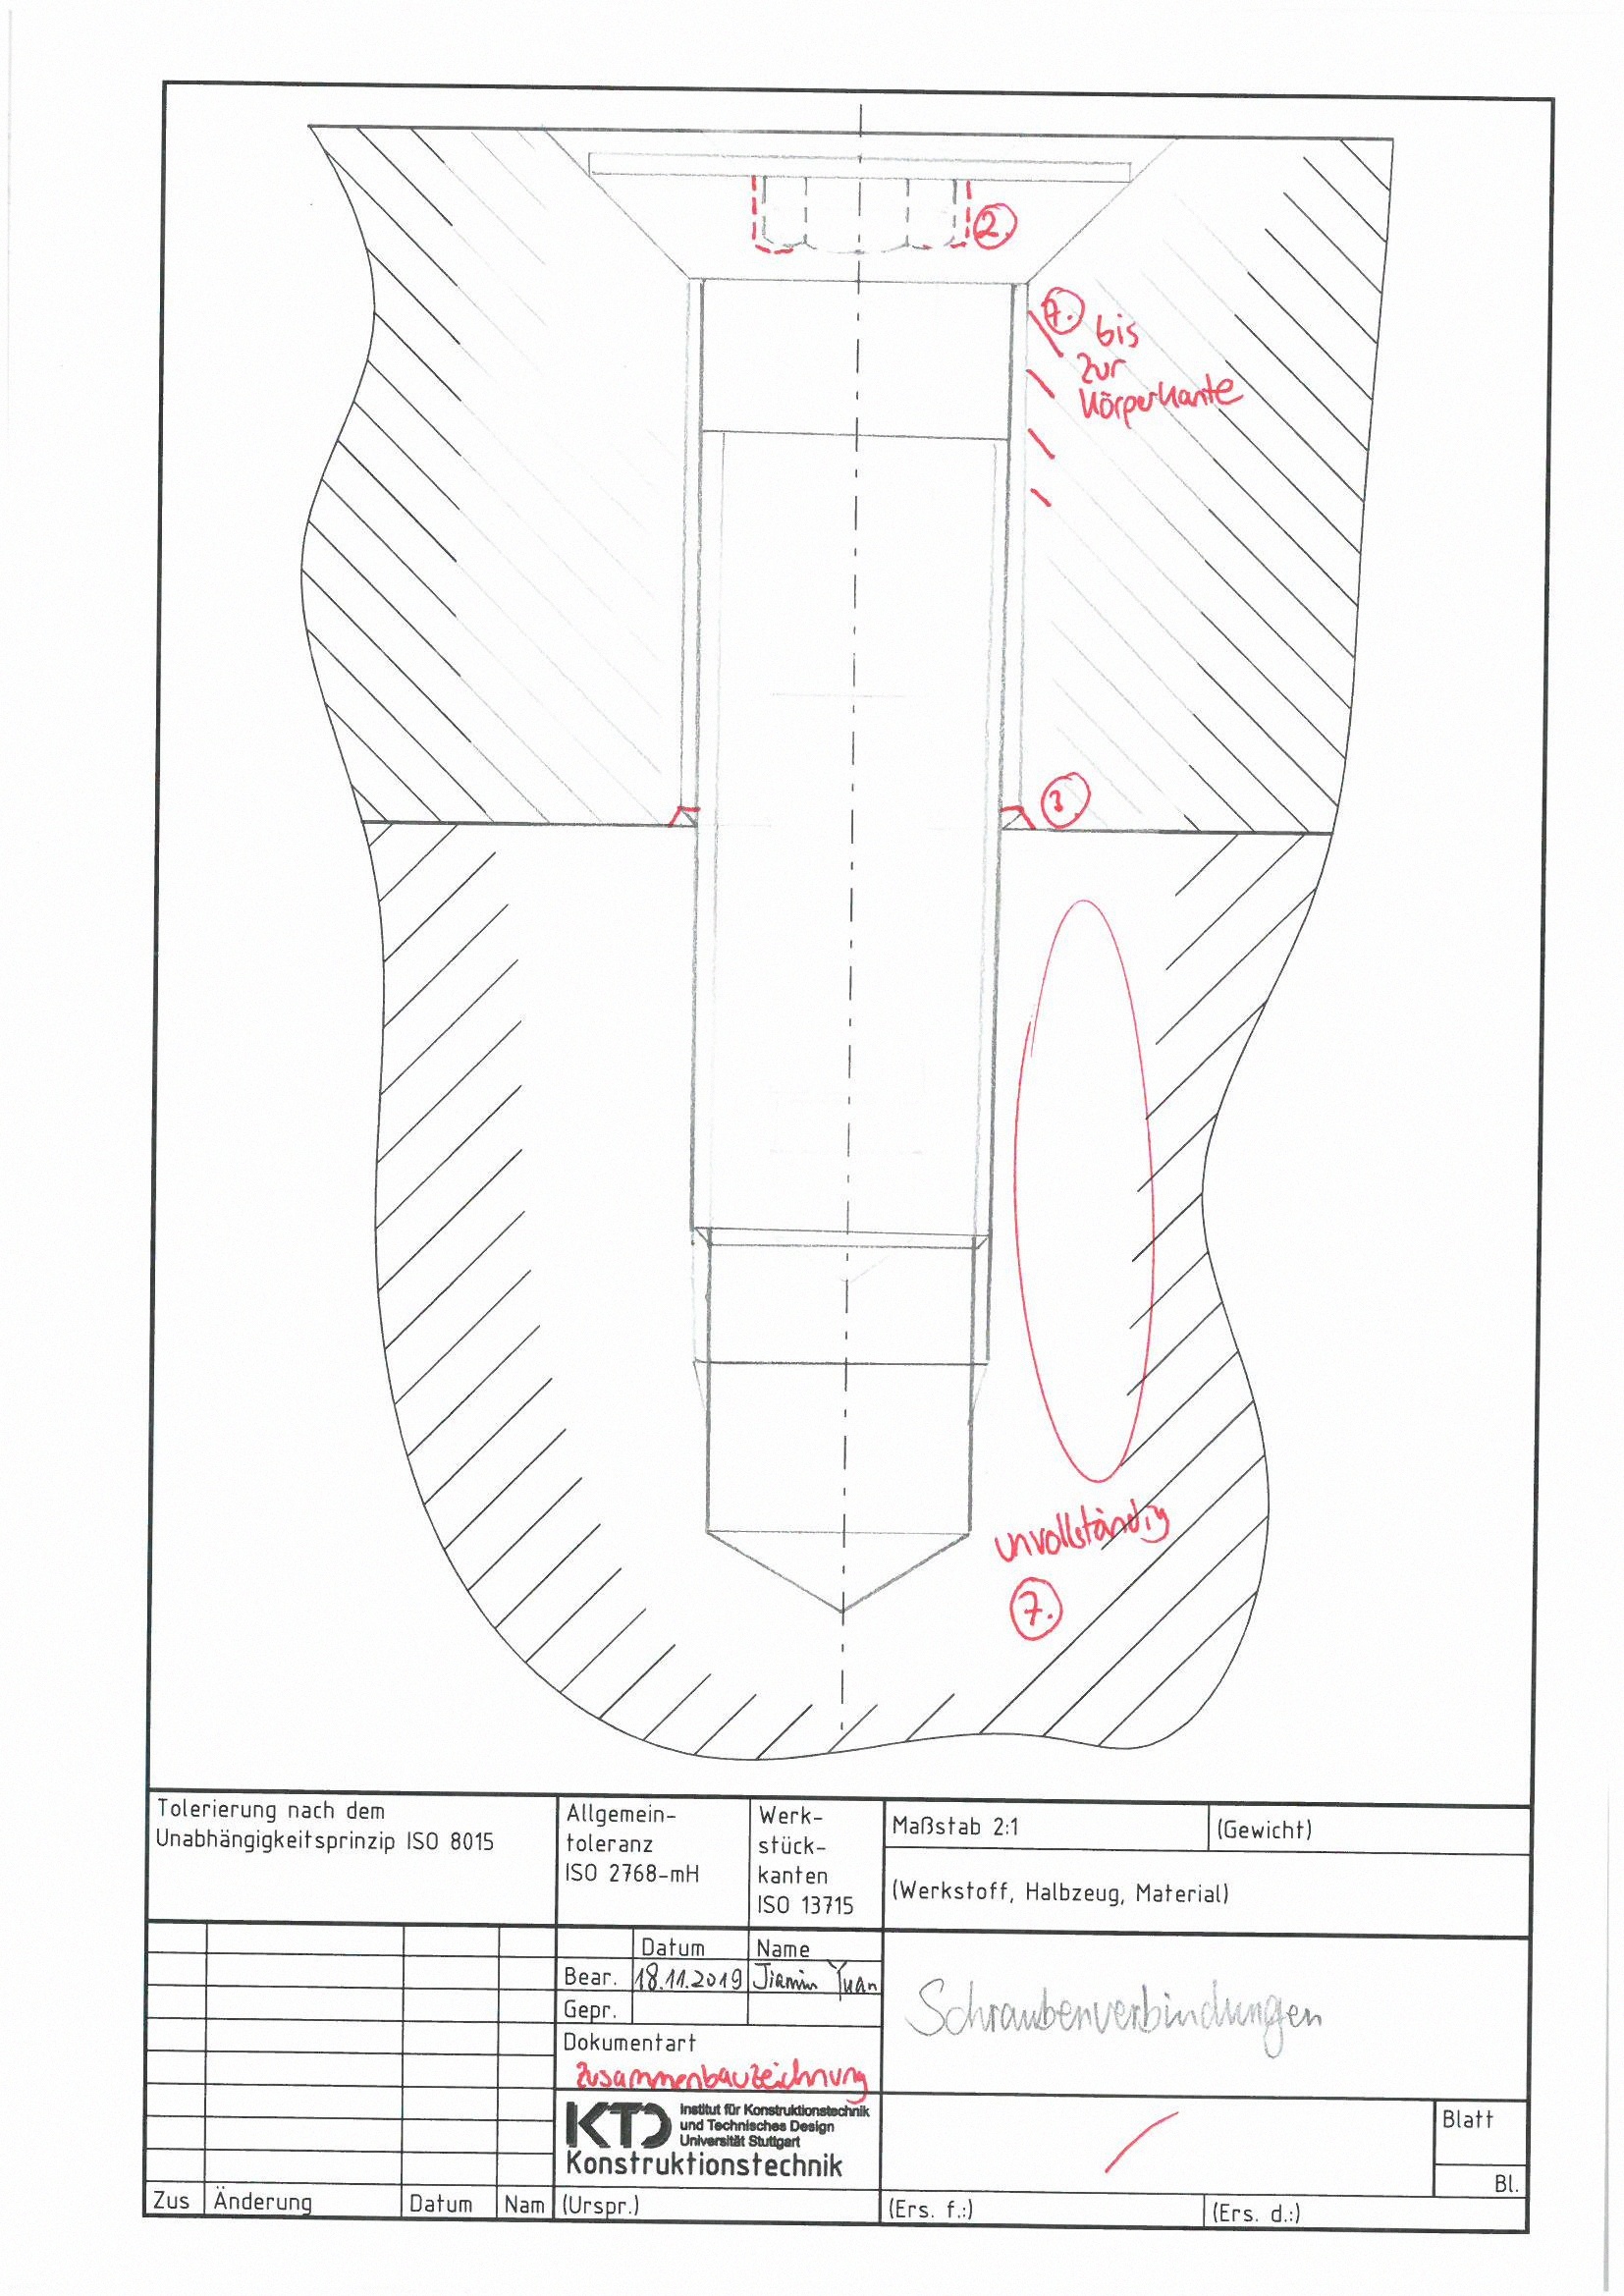 2.
7. bis
zur
Körperkante
3
unvollständig
7.
Tolerierung nach dem
Unabhängigkeitsprinzip ISO 8015
Allgemein-
toleranz
ISO 2768-mH
Werk-
stück-
kanten
ISO 13715
Maßstab 2:1
(Gewicht)
(Werkstoff, Halbzeug, Material)
Datum
Name
Bear.
18.11.2019
Jiamin Yuan
Gepr.
Dokumentart
Zusammenbauzeichnung
Schraubenverbindungen
KTD
Institut für Konstruktionstechnik
und Technisches Design
Universität Stuttgart
Konstruktionstechnik
Blatt
Bl.
Zus
Änderung
Datum
Nam
(Urspr.)
(Ers. f.:)
(Ers. d.:)